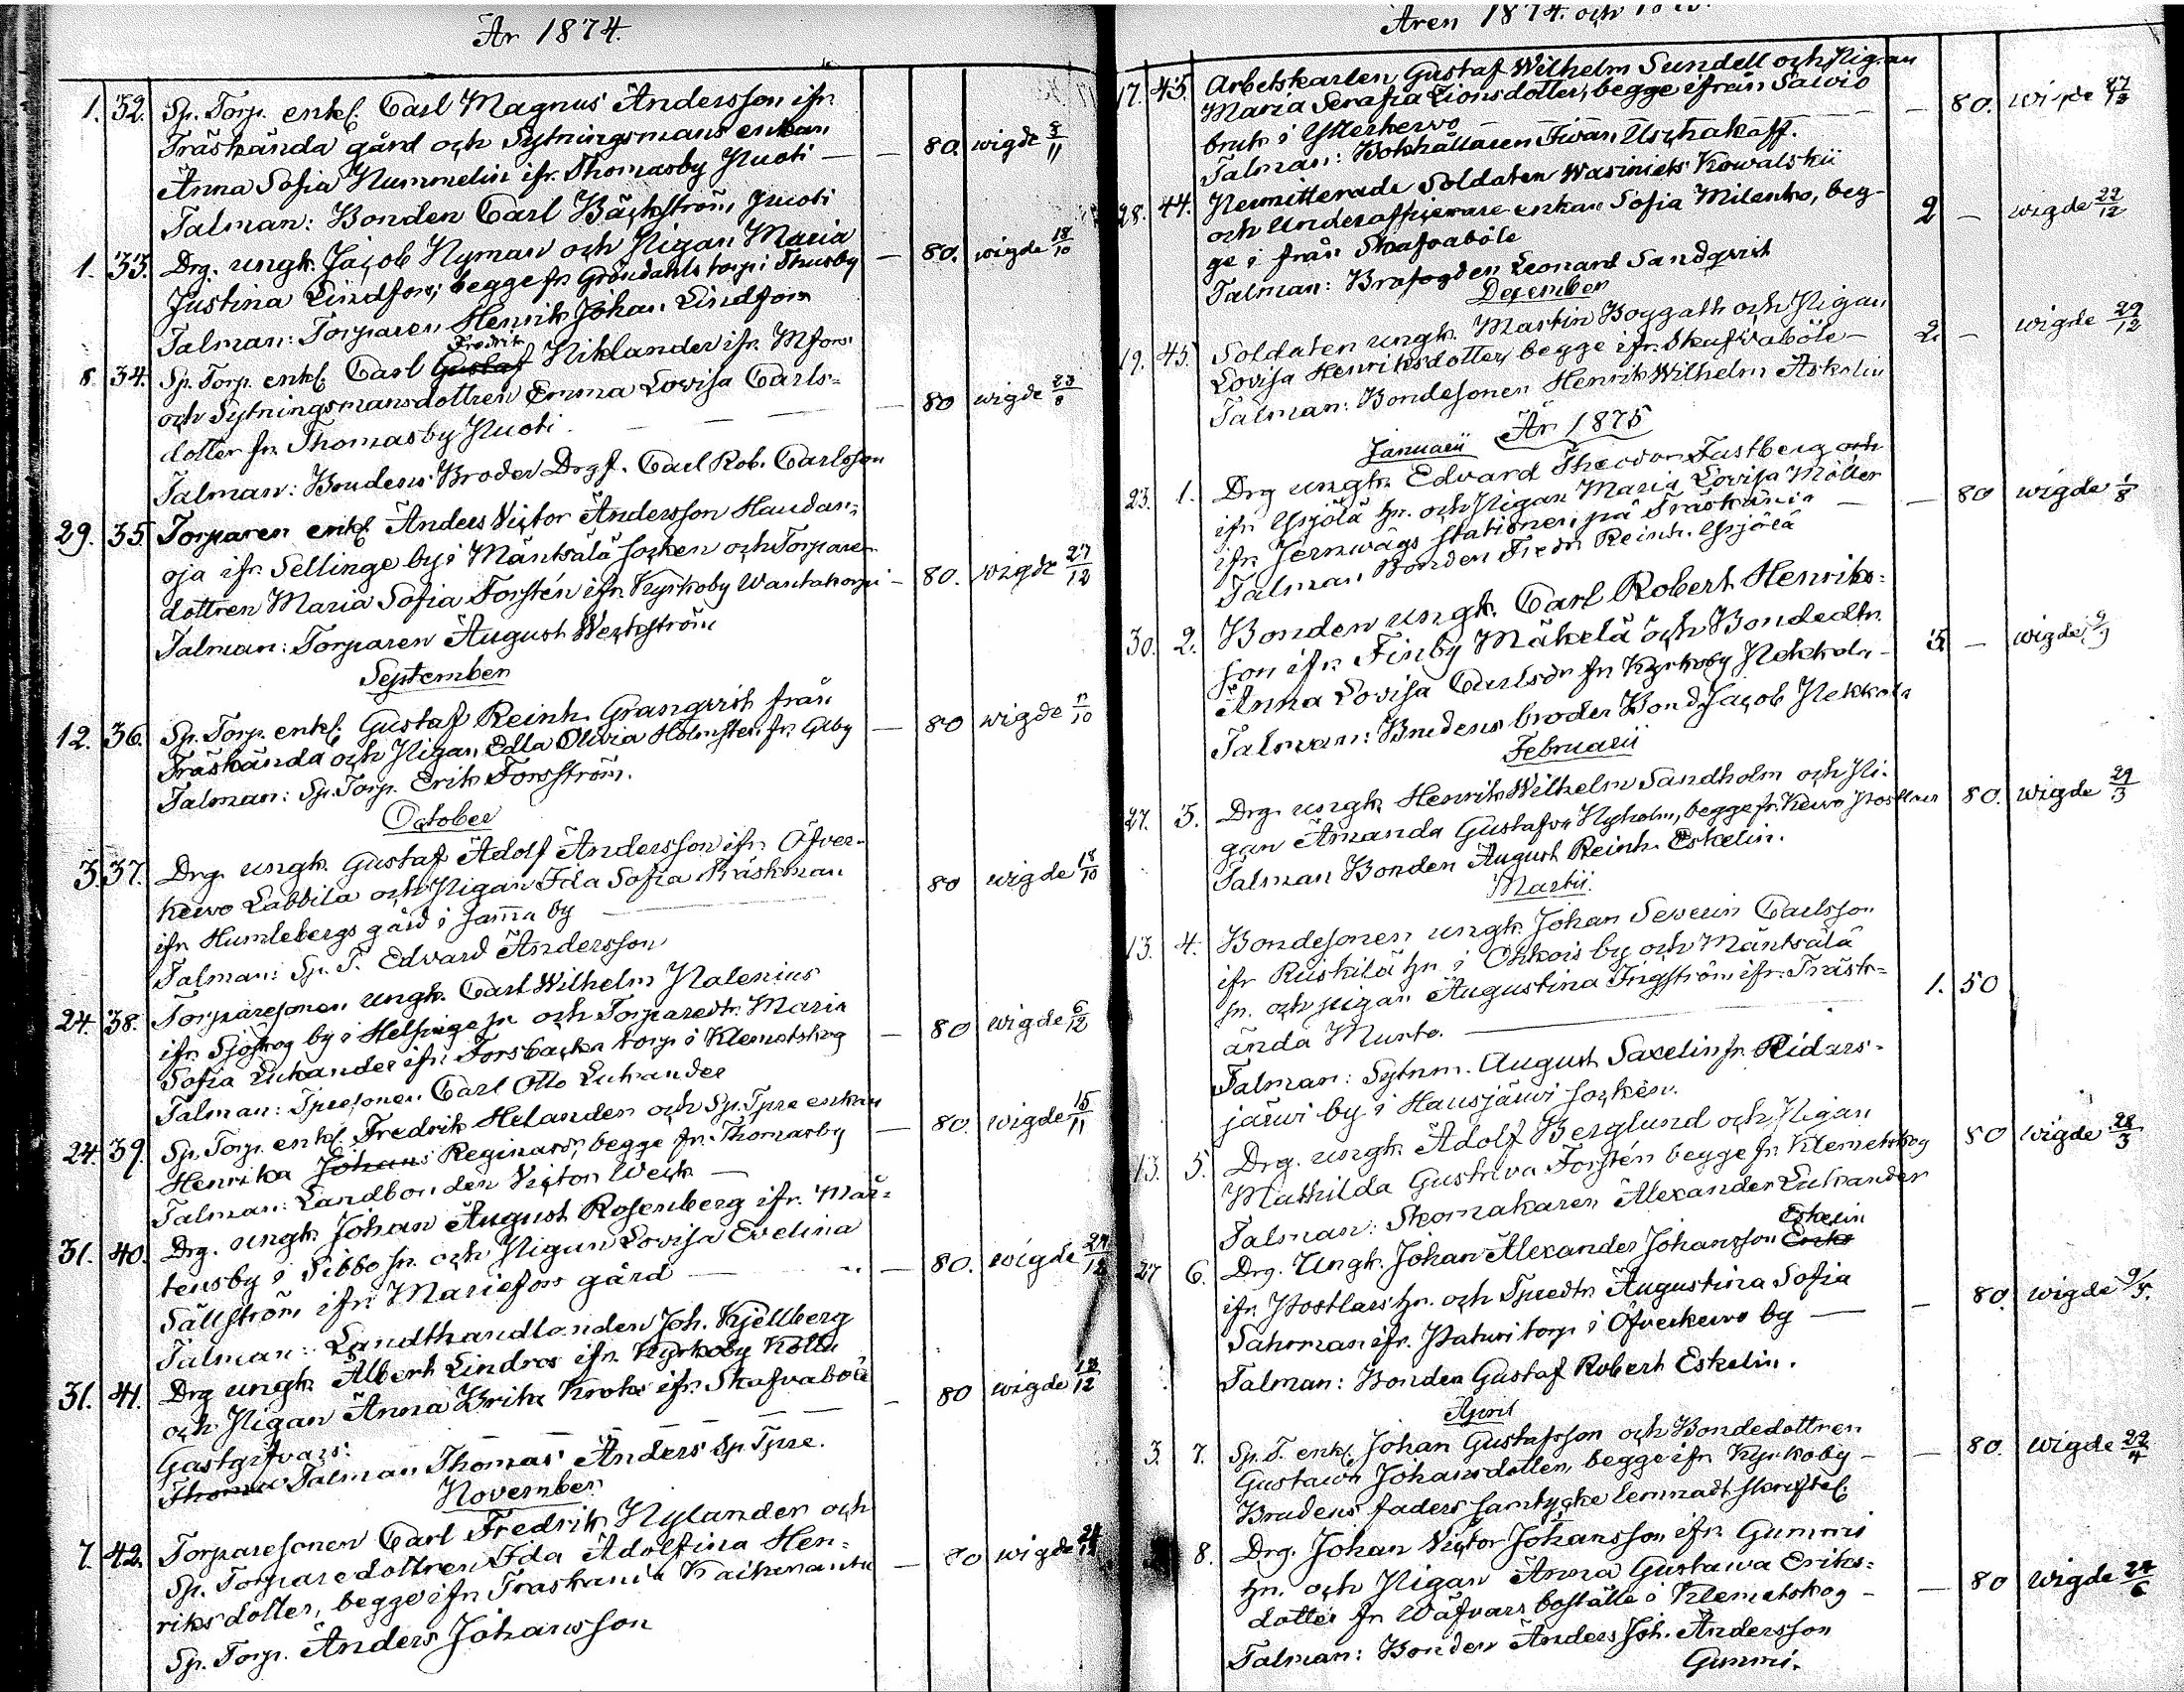 År 1874.
1. 32. Sp. Torp. enkl. Carl Magnus Andersson ifr.
Träskända gård och Sytningsmans enkan
Anna Sofia Nummelin ifr. Thomasby Nuoti — — 80. wigde 8/11
Talman: Bonden Carl Bäckström Nuoti
1. 33. Drg. ungk. Jacob Nyman och Pigan Maria
Justina Lindfors; begge fr. Gröndahls torp i Thusby — 80. wigde 18/10
Talman: Torparen Henrik Johan Lindfors
Fredrik
8. 34. Sp. Torp. enkl. Carl Gustaf Niklander ifr. Mfors
och Sytningsmansdottren Emma Lovisa Carls=
dotter fr. Thomasby Nuoti. — — — 80 wigde 23/8
Talman: Brudens Broder Drg f. Carl Rob. Carlsson
29. 35. Torparen enkl. Anders Victor Andersson Haudan=
oja ifr. Sellinge by i Mäntsälä socken och Torpare-
dottren Maria Sofia Forstén ifr. Kyrkoby Wantakorpi — 80. wigde 27/12
Talman: Torparen August Weckström
September
12. 36. Sp. Torp. enkl. Gustaf Reinh. Granqvist från
Träskända och Pigan Edla Olivia Holmsten fr. Gby — 80 wigde 11/10
Talman: Sp. Torp. Erik Forsström.
October
3. 37. Drg. ungk. Gustaf Adolf Andersson ifr. Öfver-
kervo Labbila och Pigan Ida Sofia Räskman
ifr Humlebergs gård i samma by — 80 wigde 18/10
Talman: Sp. T. Edvard Andersson
24. 38. Torparesonen ungk. Carl Wilhelm Nalenius
ifr. Sjöskog by i Helsinge sn och Torparedtr. Maria
Sofia Lukander ifr. Forsbacka torp i Klemetskog — 80 wigde 6/12
Talman: Tpresonen Carl Otto Lukander
24. 39. Sp. Torp. enkl. Fredrik Helander och Sp. Tpre enkan
Henrika Johans Reginasdr, begge fr. Thomasby — 80. wigde 15/11
Talman: Landbonden Victor Weck —
31. 40. Drg. ungk. Johan August Rosenberg ifr. Mår=
tensby i Sibbo sn. och Pigan Lovisa Evelina
Sällström ifr. Mariefors gård — — 80. wigde 27/12
Talman: Landthandlanden Joh. Kjellberg
31. 41. Drg ungk. Albert Lindroos ifr. Kyrkoby Kolla
och Pigan Anna Brita Kroks ifr. Skafvaböle
Gästgifvars. — — — 80 wigde 13/12
Thomas Talman Thomas Anders Sp Tpre.
November
7. 42. Torparesonen Carl Fredrik Nylander och
Sp. Torparedottren Ida Adolfina Hen=
riksdotter, begge ifr. Träskända Kaikmantu — 80 wigde 24/11
Sp. Torp. Anders Johansson
Åren 1874. och
17. 43. Arbetskarlen Gustaf Wilhelm Sundell och Pigan
Maria Serafia Lionsdotter, begge ifrån Savio
bruk i Ytterkervo — — 80. wigde 27/12
Talman: Bokhållaren Iwan Uschakoff.
28. 44. Permitterade Soldaten Wasiniels Kowalskii
och Underofficerare enkan Sofia Milenko, beg-
ge i från Skafvaböle 2 — wigde 22/12
Talman: Brofogden Leonard Sandqvist
December
19. 45. Soldaten ungk. Martin Boggath och Pigan
Lovisa Henriksdotter, begge ifr. Skafvaböle — 2. — wigde 29/12
Talman: Bondesonen Henrik Wilhelm Askolin
År 1875
Januarii
23. 1. Drg ungk. Edvard Theodor Fastberg och
ifr. Ylsjölä hr. och Pigan Maria Lovisa Möller
ifr. Jernvägs stationen på Träskända — — 80 wigde 1/8
Talman Bonden Fredr Reinh. Ylsjölä
30. 2. Bonden ungk. Carl Robert Henriks=
son ifr. Finby Mäkelä och Bondedtr.
Anna Lovisa Carlsdr fr. Kyrkoby Pekkola — 5 — wigde
Talman: Brudens broder Bond. Jacob Pekkola
Februarii
27. 3. Drg. ungk. Henrik Wilhelm Sandholm och Pi-
gan Amanda Gustafva Nyholm, begge fr. Kervo Postlars 80. wigde 29/3
Talman Bonden August Reinh. Eskelin.
Martii.
13. 4. Bondesonen ungk. Johan Severin Carlsson
ifr Ruskilä hr. i Ohkois by och Mäntsälä
sn. och pigan Augustina Fingström ifr. Träsk=
ända Murto. — 1. 50
Talman: Sytnm. August Saxelin fr. Ridars-
järvi by i Hausjärvi socken.
13. 5. Drg. ungk. Adolf Berglund och Pigan
Mathilda Gustava Forstén begge fr. Klemetskog 80 wigde 28/3
Talman: Skomakaren Alexander Lukander
Eskelin
27 6. Drg. Ungk. Johan Alexander Johansson Eriks
ifr. Postlars hr. och Tpredtr Augustina Sofia
Sahrman ifr. Paturi torp i Öfverkervo by — — 80. wigde 9/5.
Talman: Bonden Gustaf Robert Eskelin.
April
3. 7. Sp. T. enkl. Johan Gustafsson och Bondedottren
Gustava Johansdotter, begge ifr. Kyrkoby — — 80. wigde 22/4
Brudens faders samtycke lemnadt skriftel.
8. Drg. Johan Victor Johansson ifr. Gummis
hr. och Pigan Anna Gustawa Eriks=
dotter fr. Wäfvars boställe i Klemetskog — — 80 wigde 24/6
Talman: Bonden Anders Joh. Andersson
Gummi.